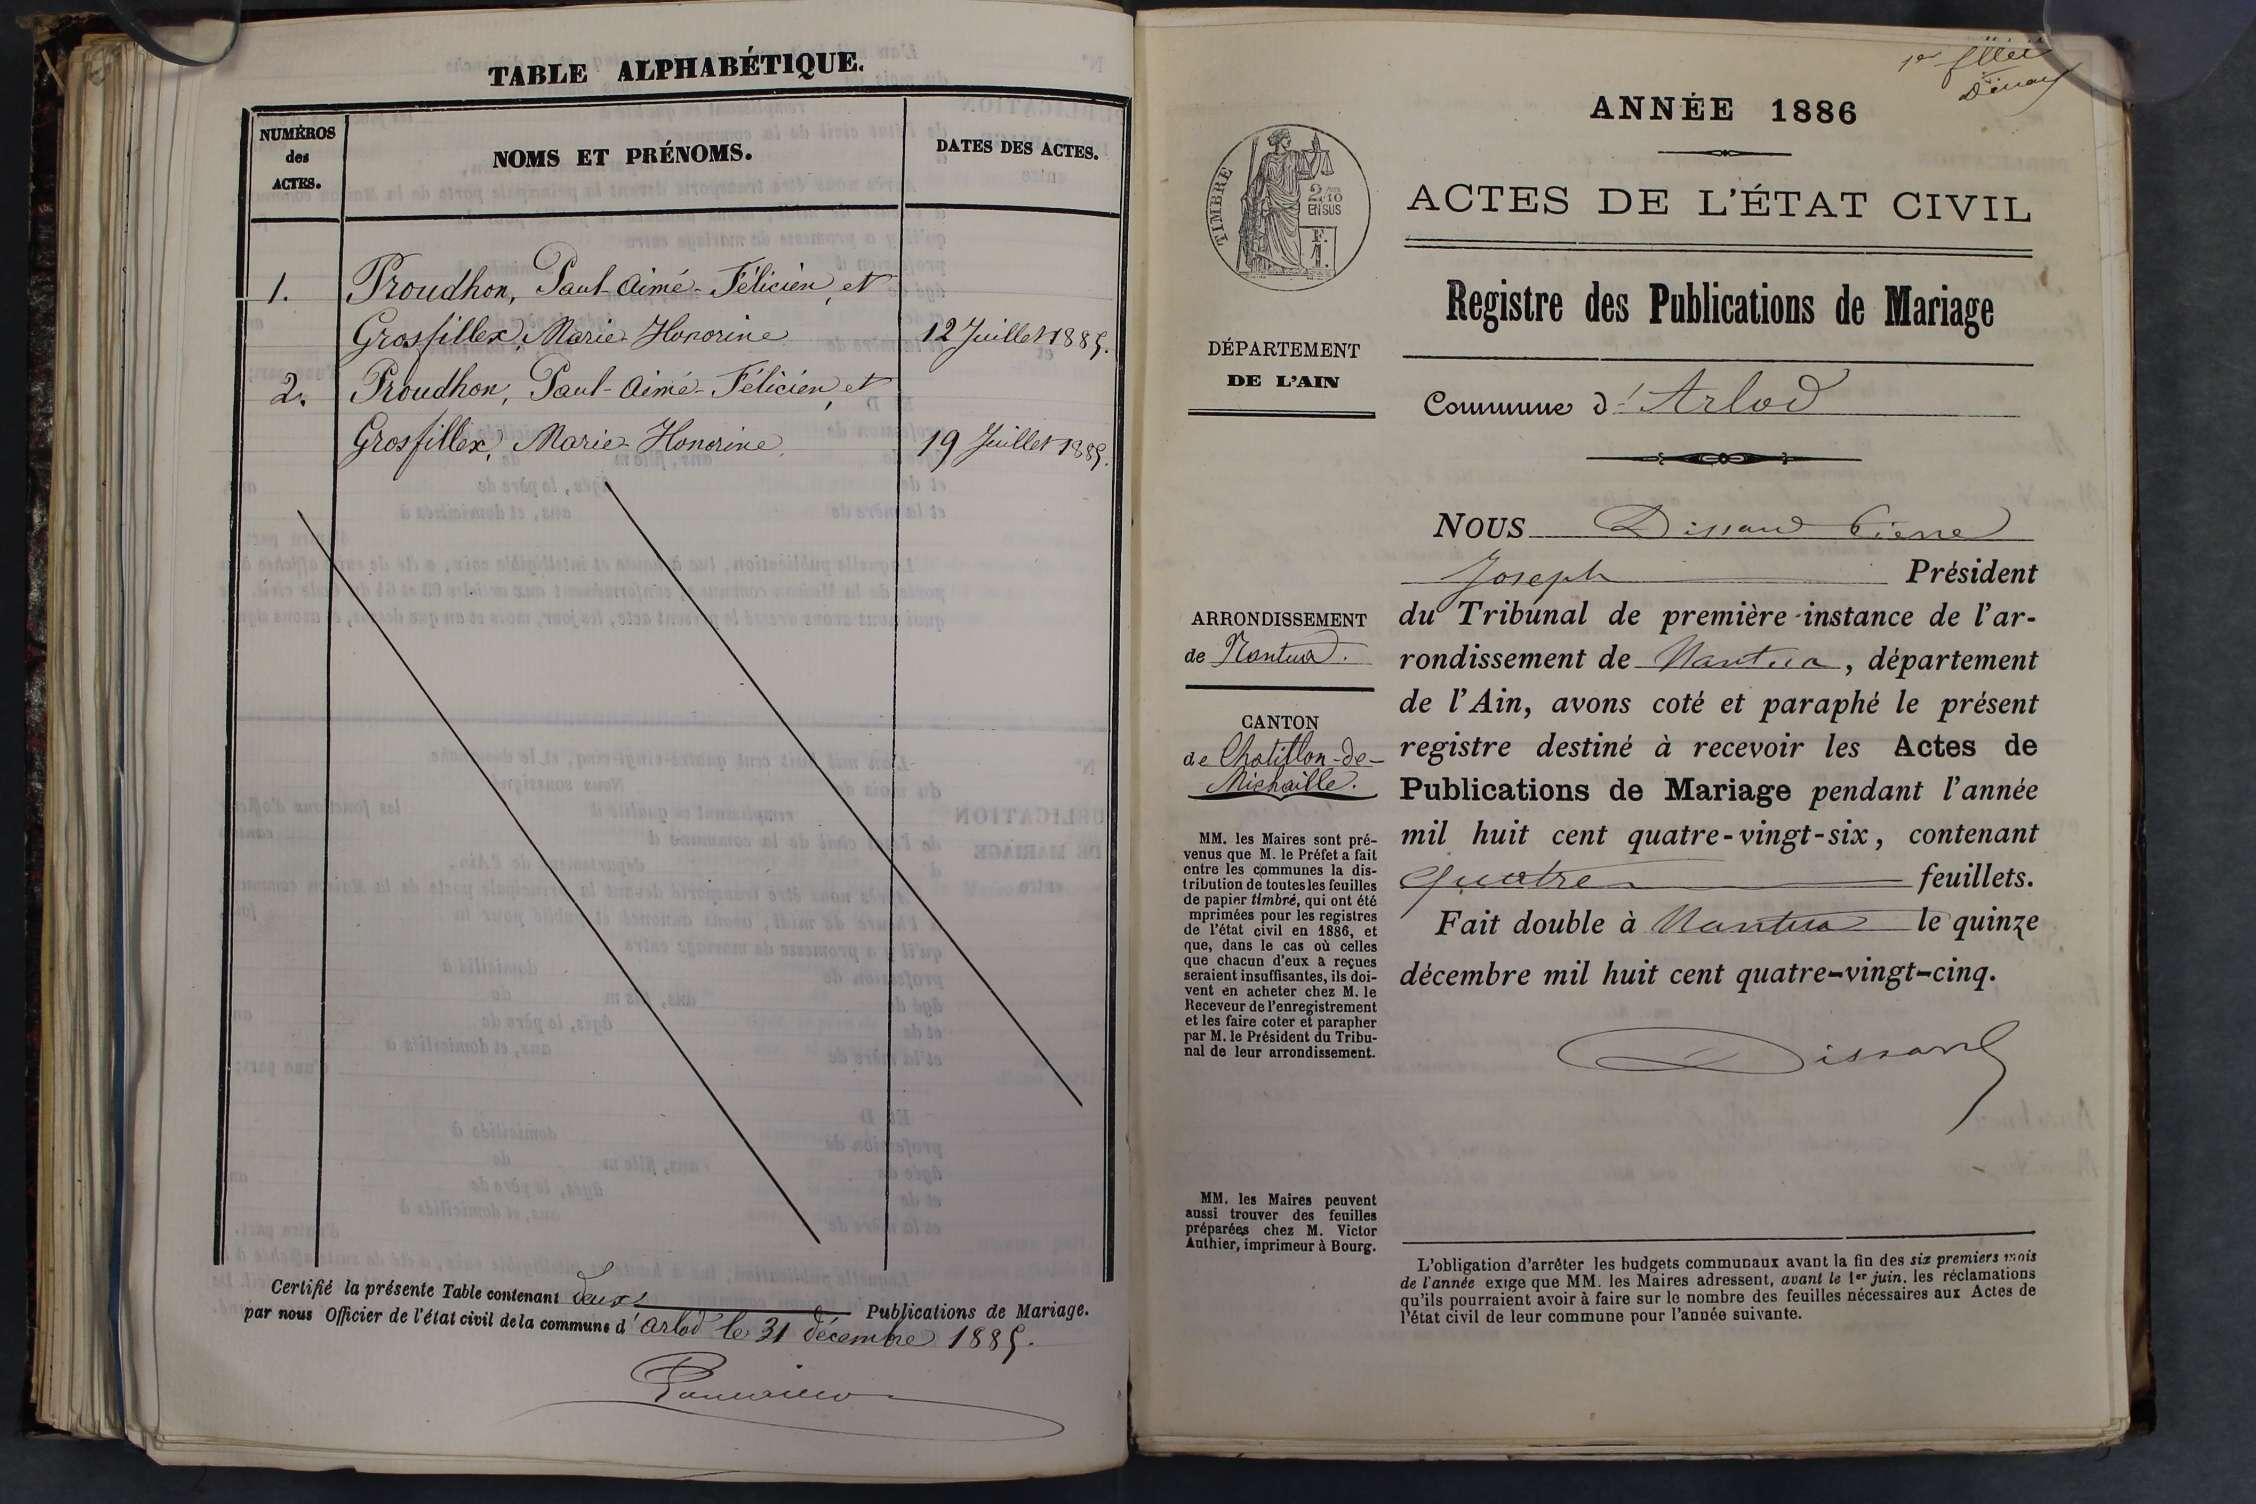 TABLE ALPHABÉTIQUE.
NUMÉROS
des
ACTES.
NOMS ET PRÉNOMS.
DATES DES ACTES.
1. Proudhon, Paul-Aimé-Félicien, et
Grosfillex, Marie-Honorine 12 Juillet 1885.
2. Proudhon, Paul-Aimé-Félicien, et
Grosfillex, Marie-Honorine 19 Juillet 1885.
Certifié la présente Table contenant deux Publications de Mariage.
par nous Officier de l'état civil de la commune d'Arlod le 31 décembre 1885.
1er fllet
ANNÉE 1886
TIMBRE
2/10
EN SUS
F.
1.
ACTES DE L'ÉTAT CIVIL
Registre des Publications de Mariage
Commune d'Arlod
DÉPARTEMENT
DE L'AIN
ARRONDISSEMENT
de Nantua.
CANTON
de Chatillon-de-
Michaille.
MM. les Maires sont pré-
venus que M. le Préfet a fait
entre les communes la dis-
tribution de toutes les feuilles
de papier timbré, qui ont été
mprimées pour les registres
de l'état civil en 1886, et
que, dans le cas où celles
que chacun d'eux a reçues
seraient insuffisantes, ils doi-
vent en acheter chez M. le
Receveur de l'enregistrement
et les faire coter et parapher
par M. le Président du Tribu-
nal de leur arrondissement.
MM. les Maires peuvent
aussi trouver des feuilles
préparées chez M. Victor
Authier, imprimeur à Bourg.
NOUS Dissard Pierre
Joseph Président
du Tribunal de première instance de l'ar-
rondissement de Nantua, département
de l'Ain, avons coté et paraphé le présent
registre destiné à recevoir les Actes de
Publications de Mariage pendant l'année
mil huit cent quatre-vingt-six, contenant
quatre feuillets.
Fait double à Nantua le quinze
décembre mil huit cent quatre-vingt-cinq.
Dissard
L'obligation d'arrêter les budgets communaux avant la fin des six premiers mois
de l'année exige que MM. les Maires adressent, avant le 1er juin, les réclamations
qu'ils pourraient avoir à faire sur le nombre des feuilles nécessaires aux Actes de
l'état civil de leur commune pour l'année suivante.